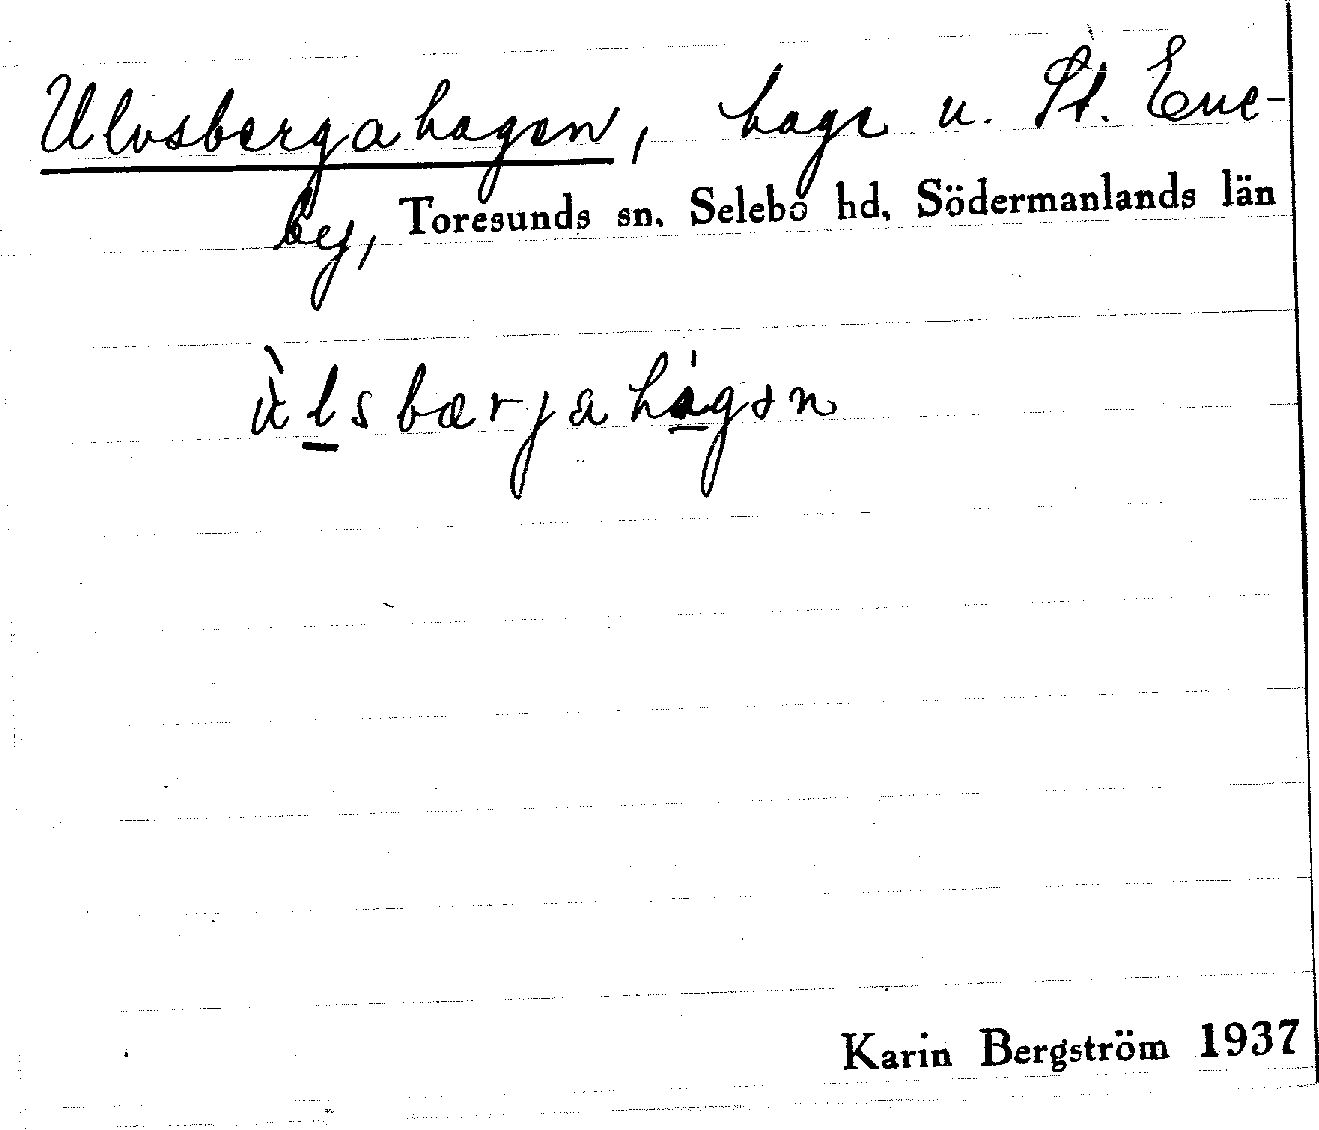 Ulvsbergahagen, hage u. St. Ene-
by, Toresunds sn, Selebo hd, Södermanlands län
Karin Bergström 1937